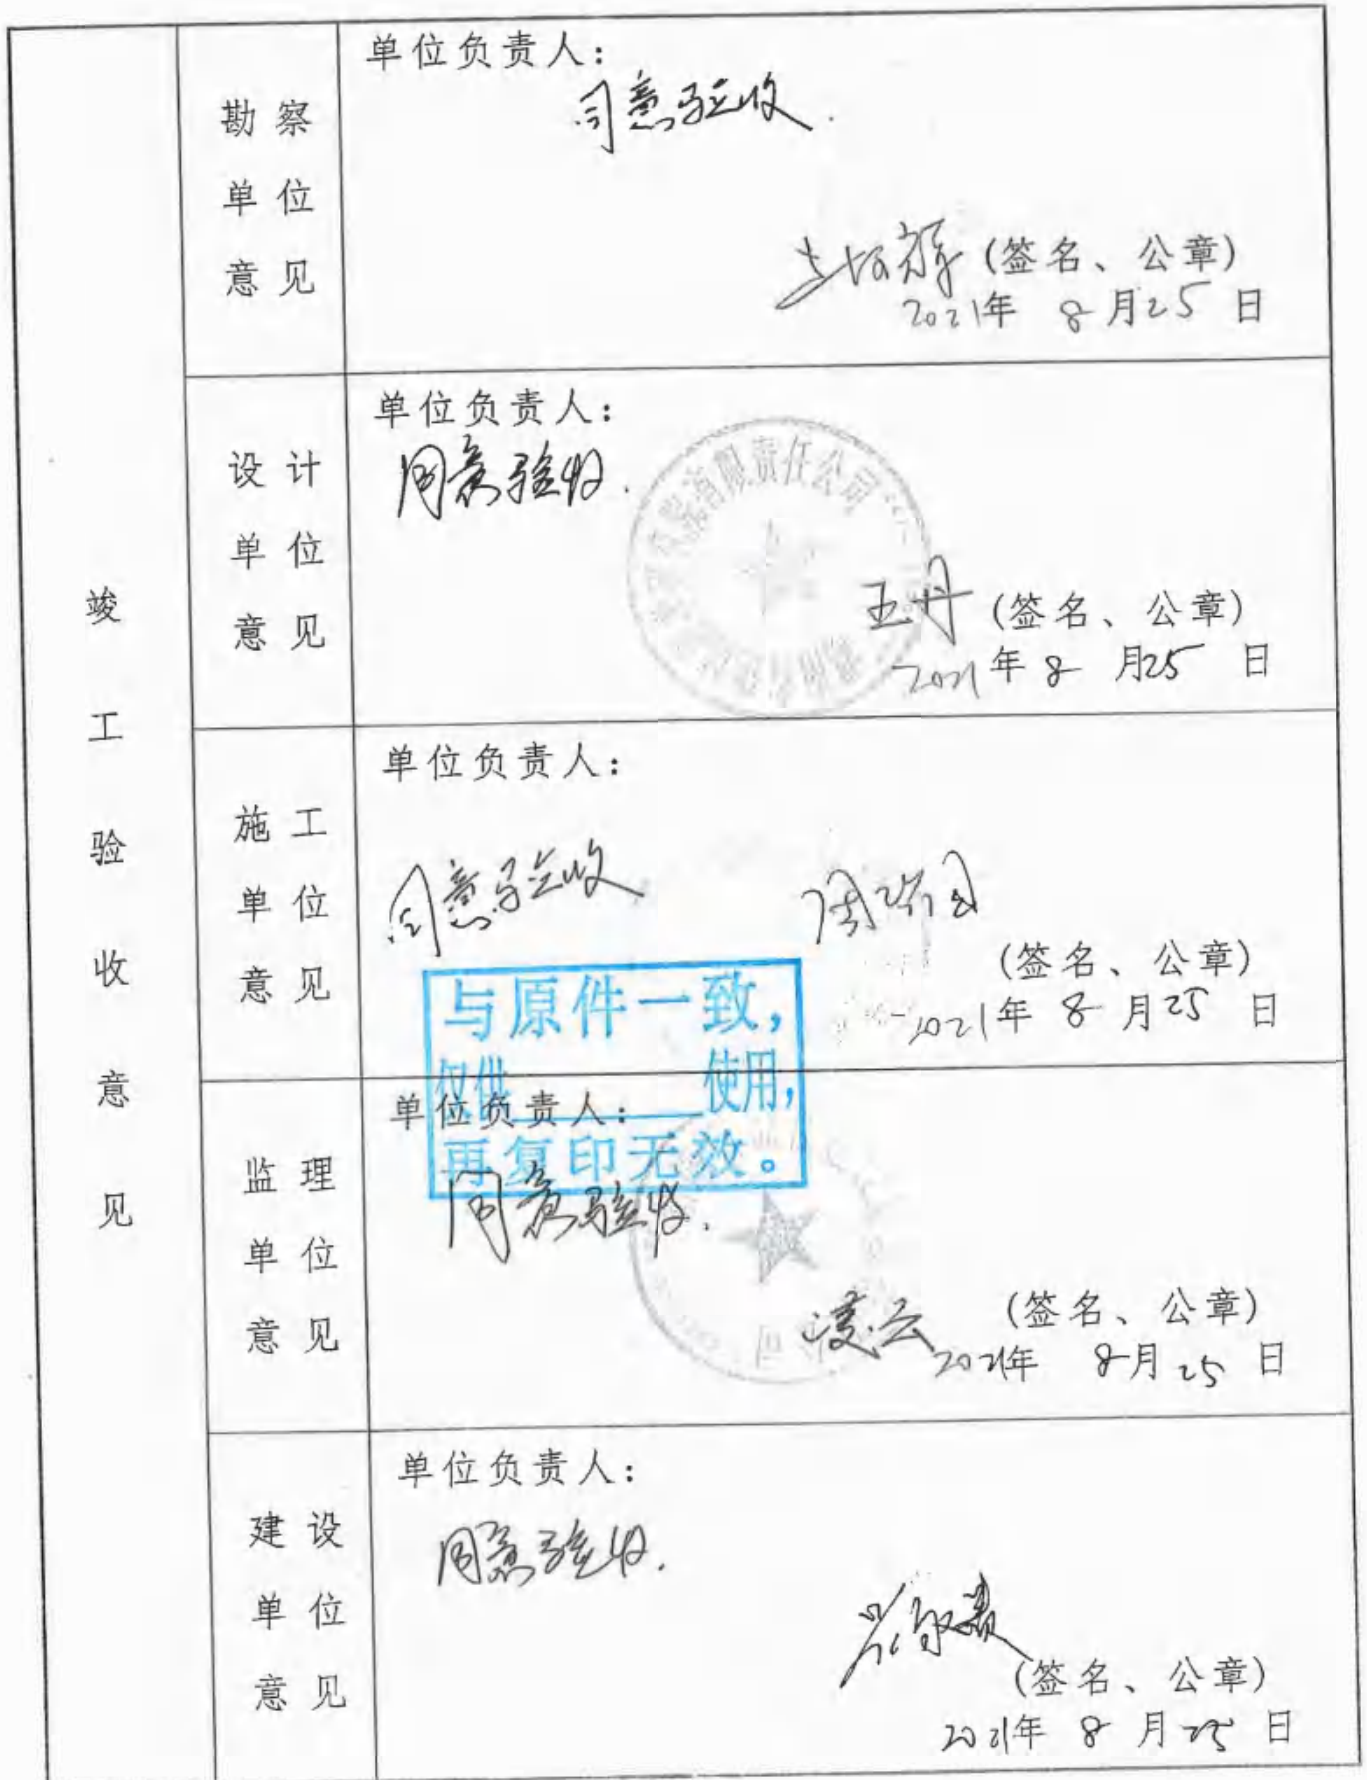 竣工验收意见
勘察单位意见
单位负责人：
同意验收.
(签名、公章)
2021年 8月25日
设计单位意见
单位负责人：
同意验收.
有限责任公司
王丹 (签名、公章)
2021年8月25日
施工单位意见
单位负责人：
同意验收
(签名、公章)
2021年8月25日
与原件一致，
仅供______使用，
再复印无效。
监理单位意见
单位负责人：
同意验收.
凌云 (签名、公章)
2021年 8月25日
建设单位意见
单位负责人：
同意验收.
(签名、公章)
2021年8月25日